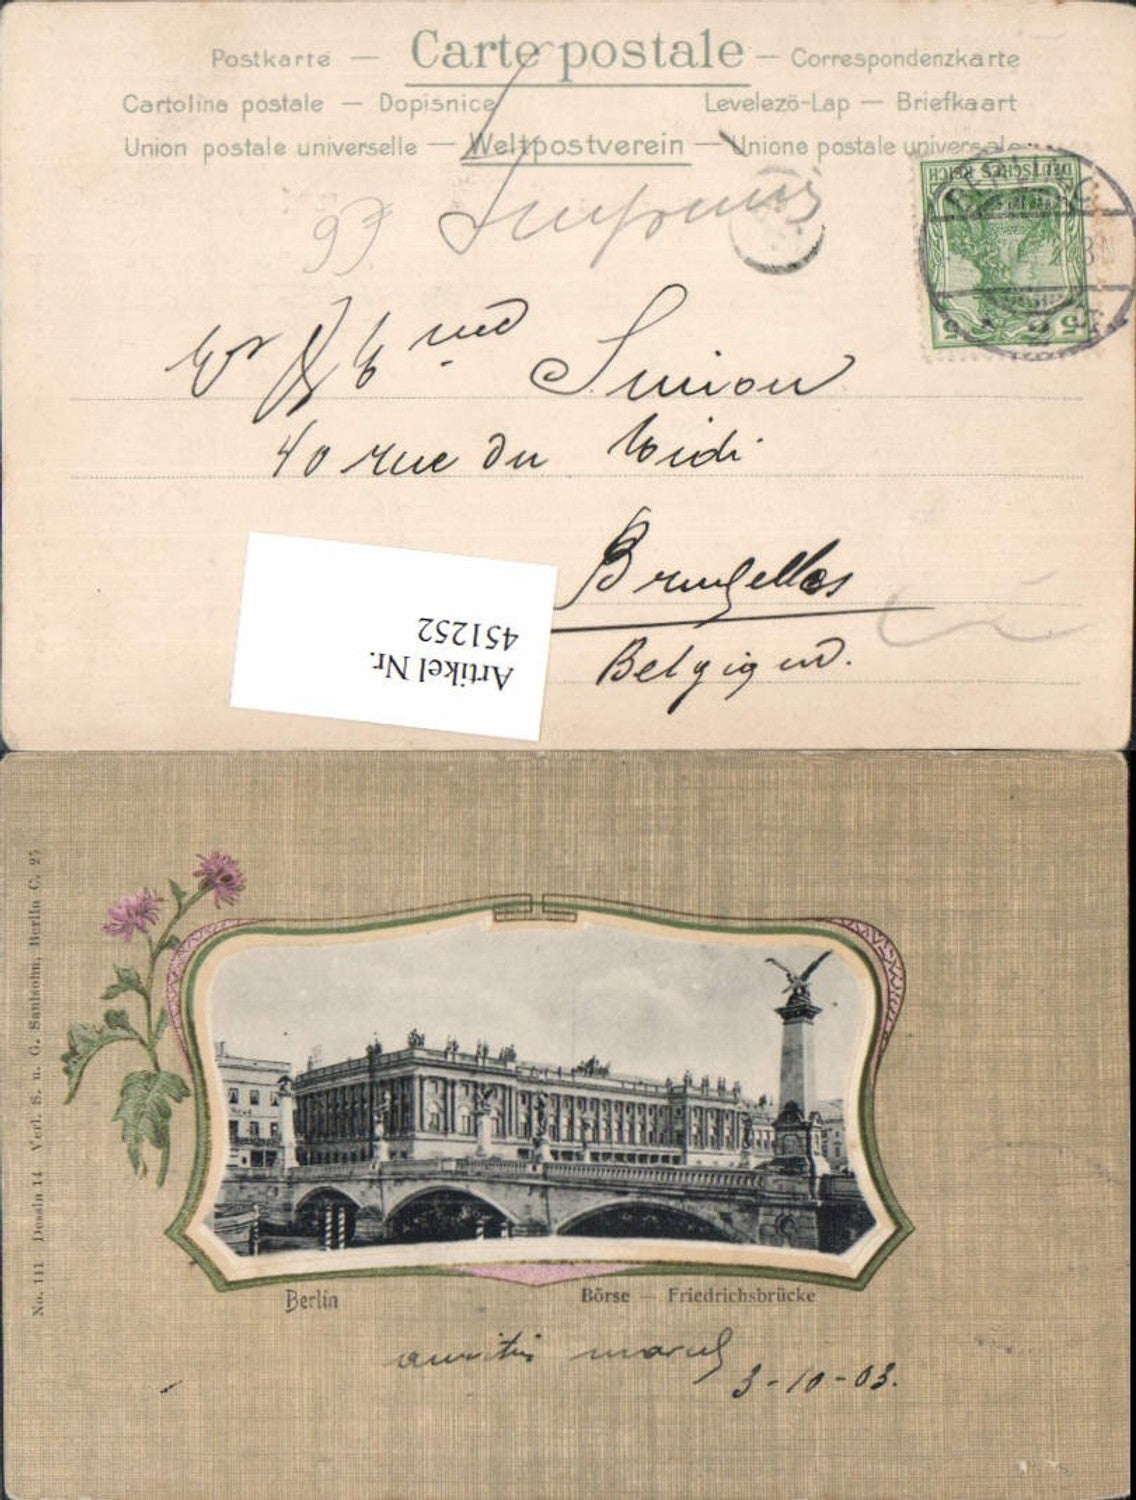 Postkarte — Carte postale — Correspondenzkarte
Cartolina postale — Dopisnice Levelezö-Lap — Briefkaart
Union postale universelle — Weltpostverein — Unione postale universale
93
DEUTSCHES REICH
5 5
Simon
40 rue du Midi
Bruxelles
Belgium.
Artikel Nr.
451252
No. 111 Dessin 14 Verl. S. u. G. Saulsohn, Berlin C. 25
Berlin Börse — Friedrichsbrücke
3-10-03.